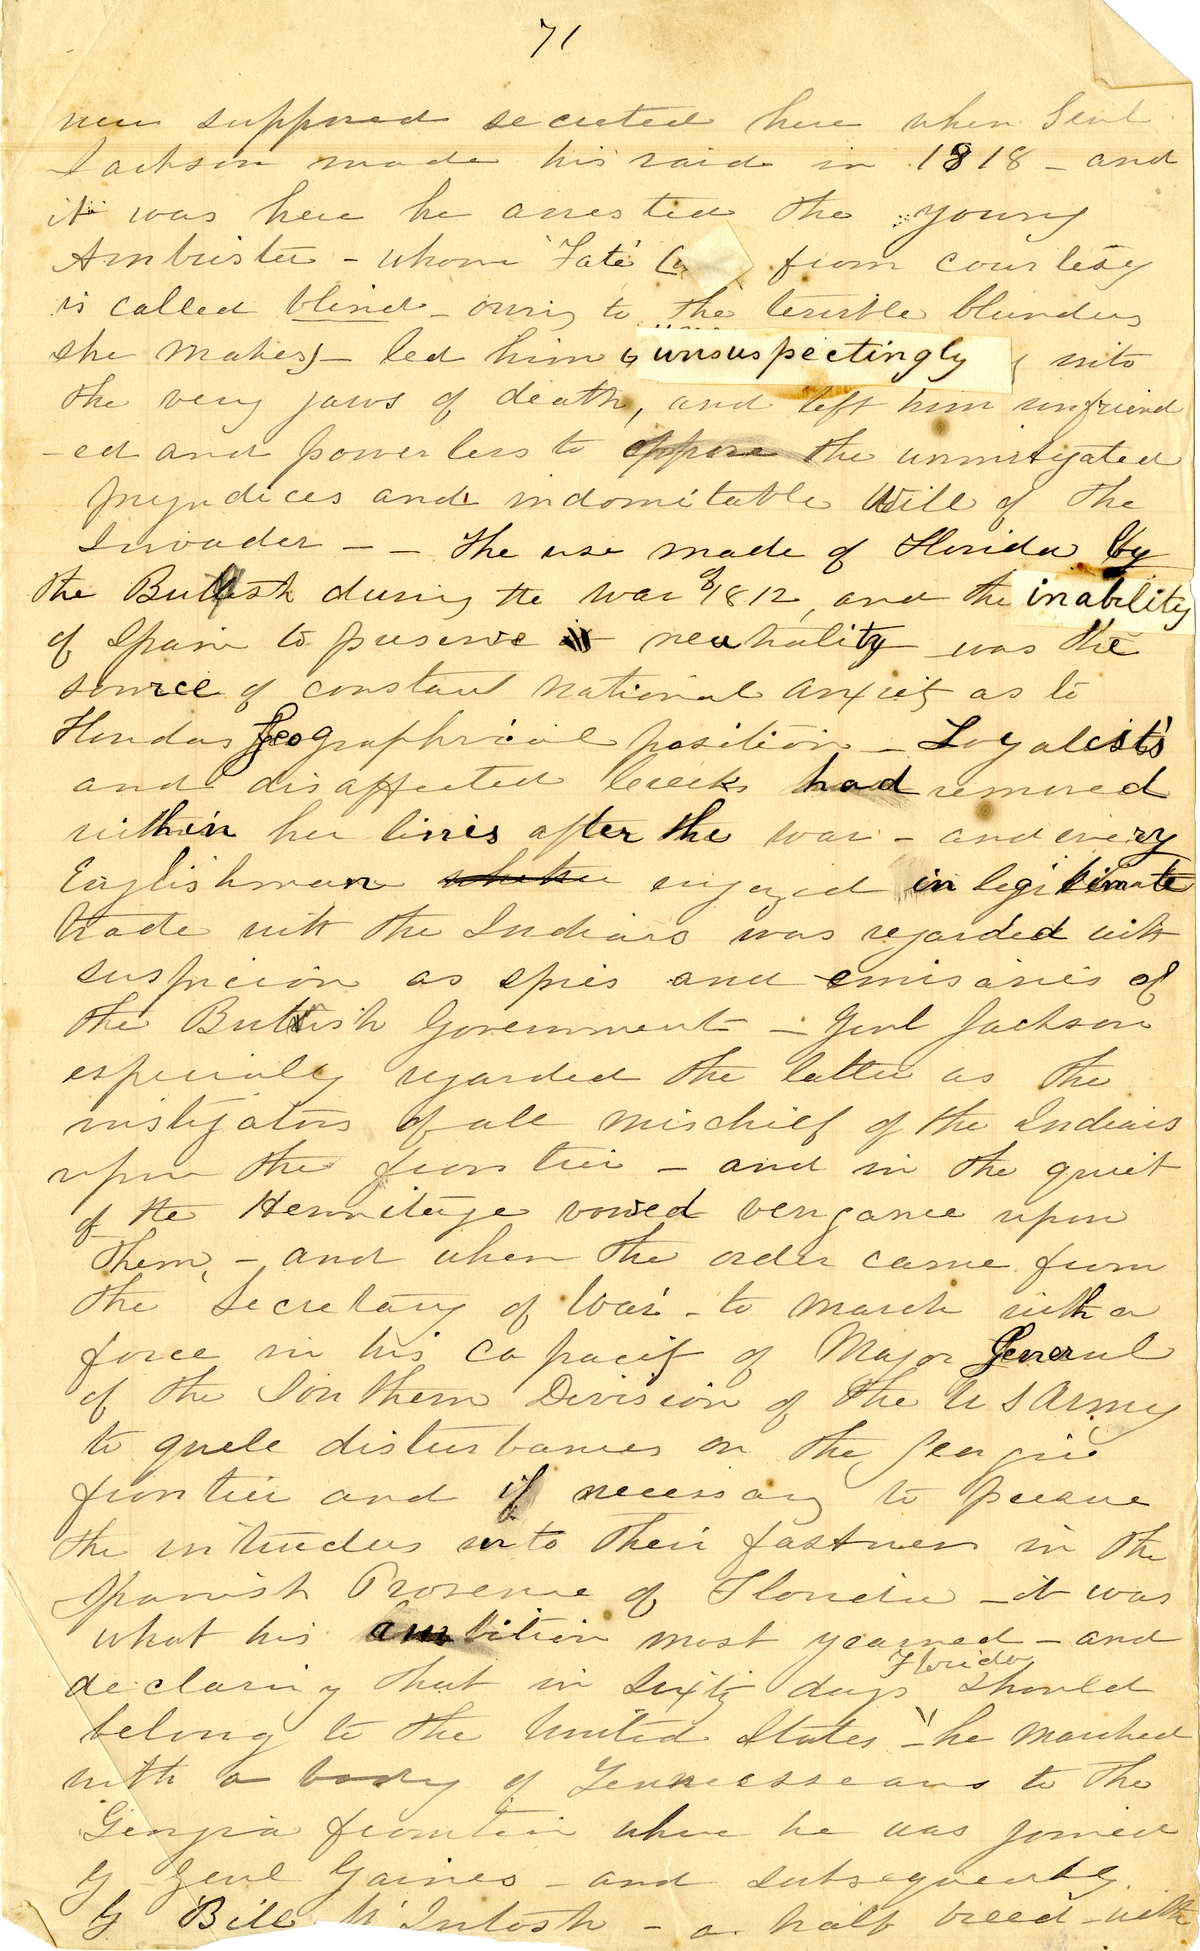 71
were supposed secreted here when Genl
Jackson made his raid in 1818 - and
it was here he arrested the young
Ambrister - whom 'Fate' ( from courtesy
is called blind - owing to the terrible blunders
she makes) - led him unsuspectingly into
the very jaws of death, and left him unfriend
-ed and powerless to oppose the unmitigated
prejudices and indomitable Will of the
Invader - - The use made of Florida by
the British during the War of 1812, and the inability
of Spain to preserve neutrality was the
source of constant national anxiety as to
Floridas Geographical position - Loyalist's
and disaffected Creeks had removed
within her lines after the war - and every
Englishman engaged in legitimate
trade with the Indians was regarded with
suspicion as spies and emisaries of
the British Government - Genl Jackson
especialy regarded the latter as the
instigators of all mischief of the Indians
upon the frontier - and in the quiet
of the Hermitage vowed vengance upon
them, - and when the order came from
the Secretary of War - to march with a
force in his capacity of Major General
of the Southern Division of the U S Army
to quell disturbances on the Georgia
frontier and if necessary to pursue
the intruders into their fastness in the
Spanish Provence of Florida - it was
what his ambition most yearned - and
declaring that in sixty days Florida should
belong to the United States" - he marched
with a body of Tennesseeans to the
Georgia frontier where he was joined
by Genl Gaines - and subsequently
by Bill McIntosh - a half breed - with